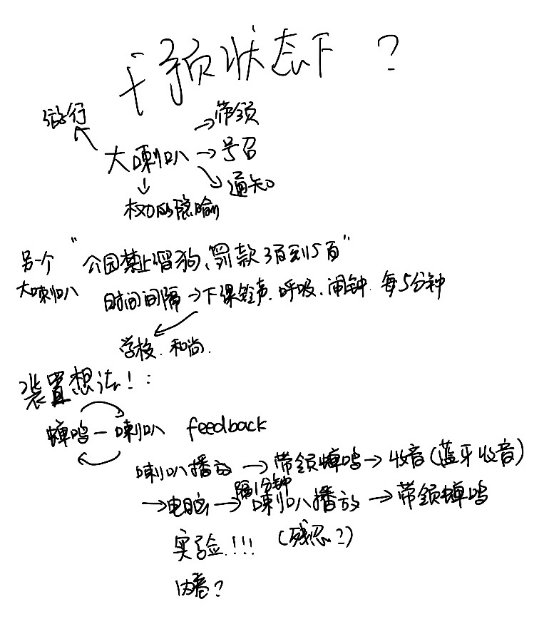 干预状态下 ?
游行
带领
大喇叭 → 号召
通知
权力的隐喻
另一个 "公园禁止遛狗、罚款3百到5百"
大喇叭 时间间隔 → 下课铃声. 呼吸. 闹钟. 每5分钟
学校. 和尚.
装置想法! :
蝉鸣 — 喇叭 feedback
喇叭播放 → 带领蝉鸣 → 收音(蓝牙收音)
隔1分钟
→ 电脑 → 喇叭播放 → 带领蝉鸣
实验.!!! (残忍?)
内省?